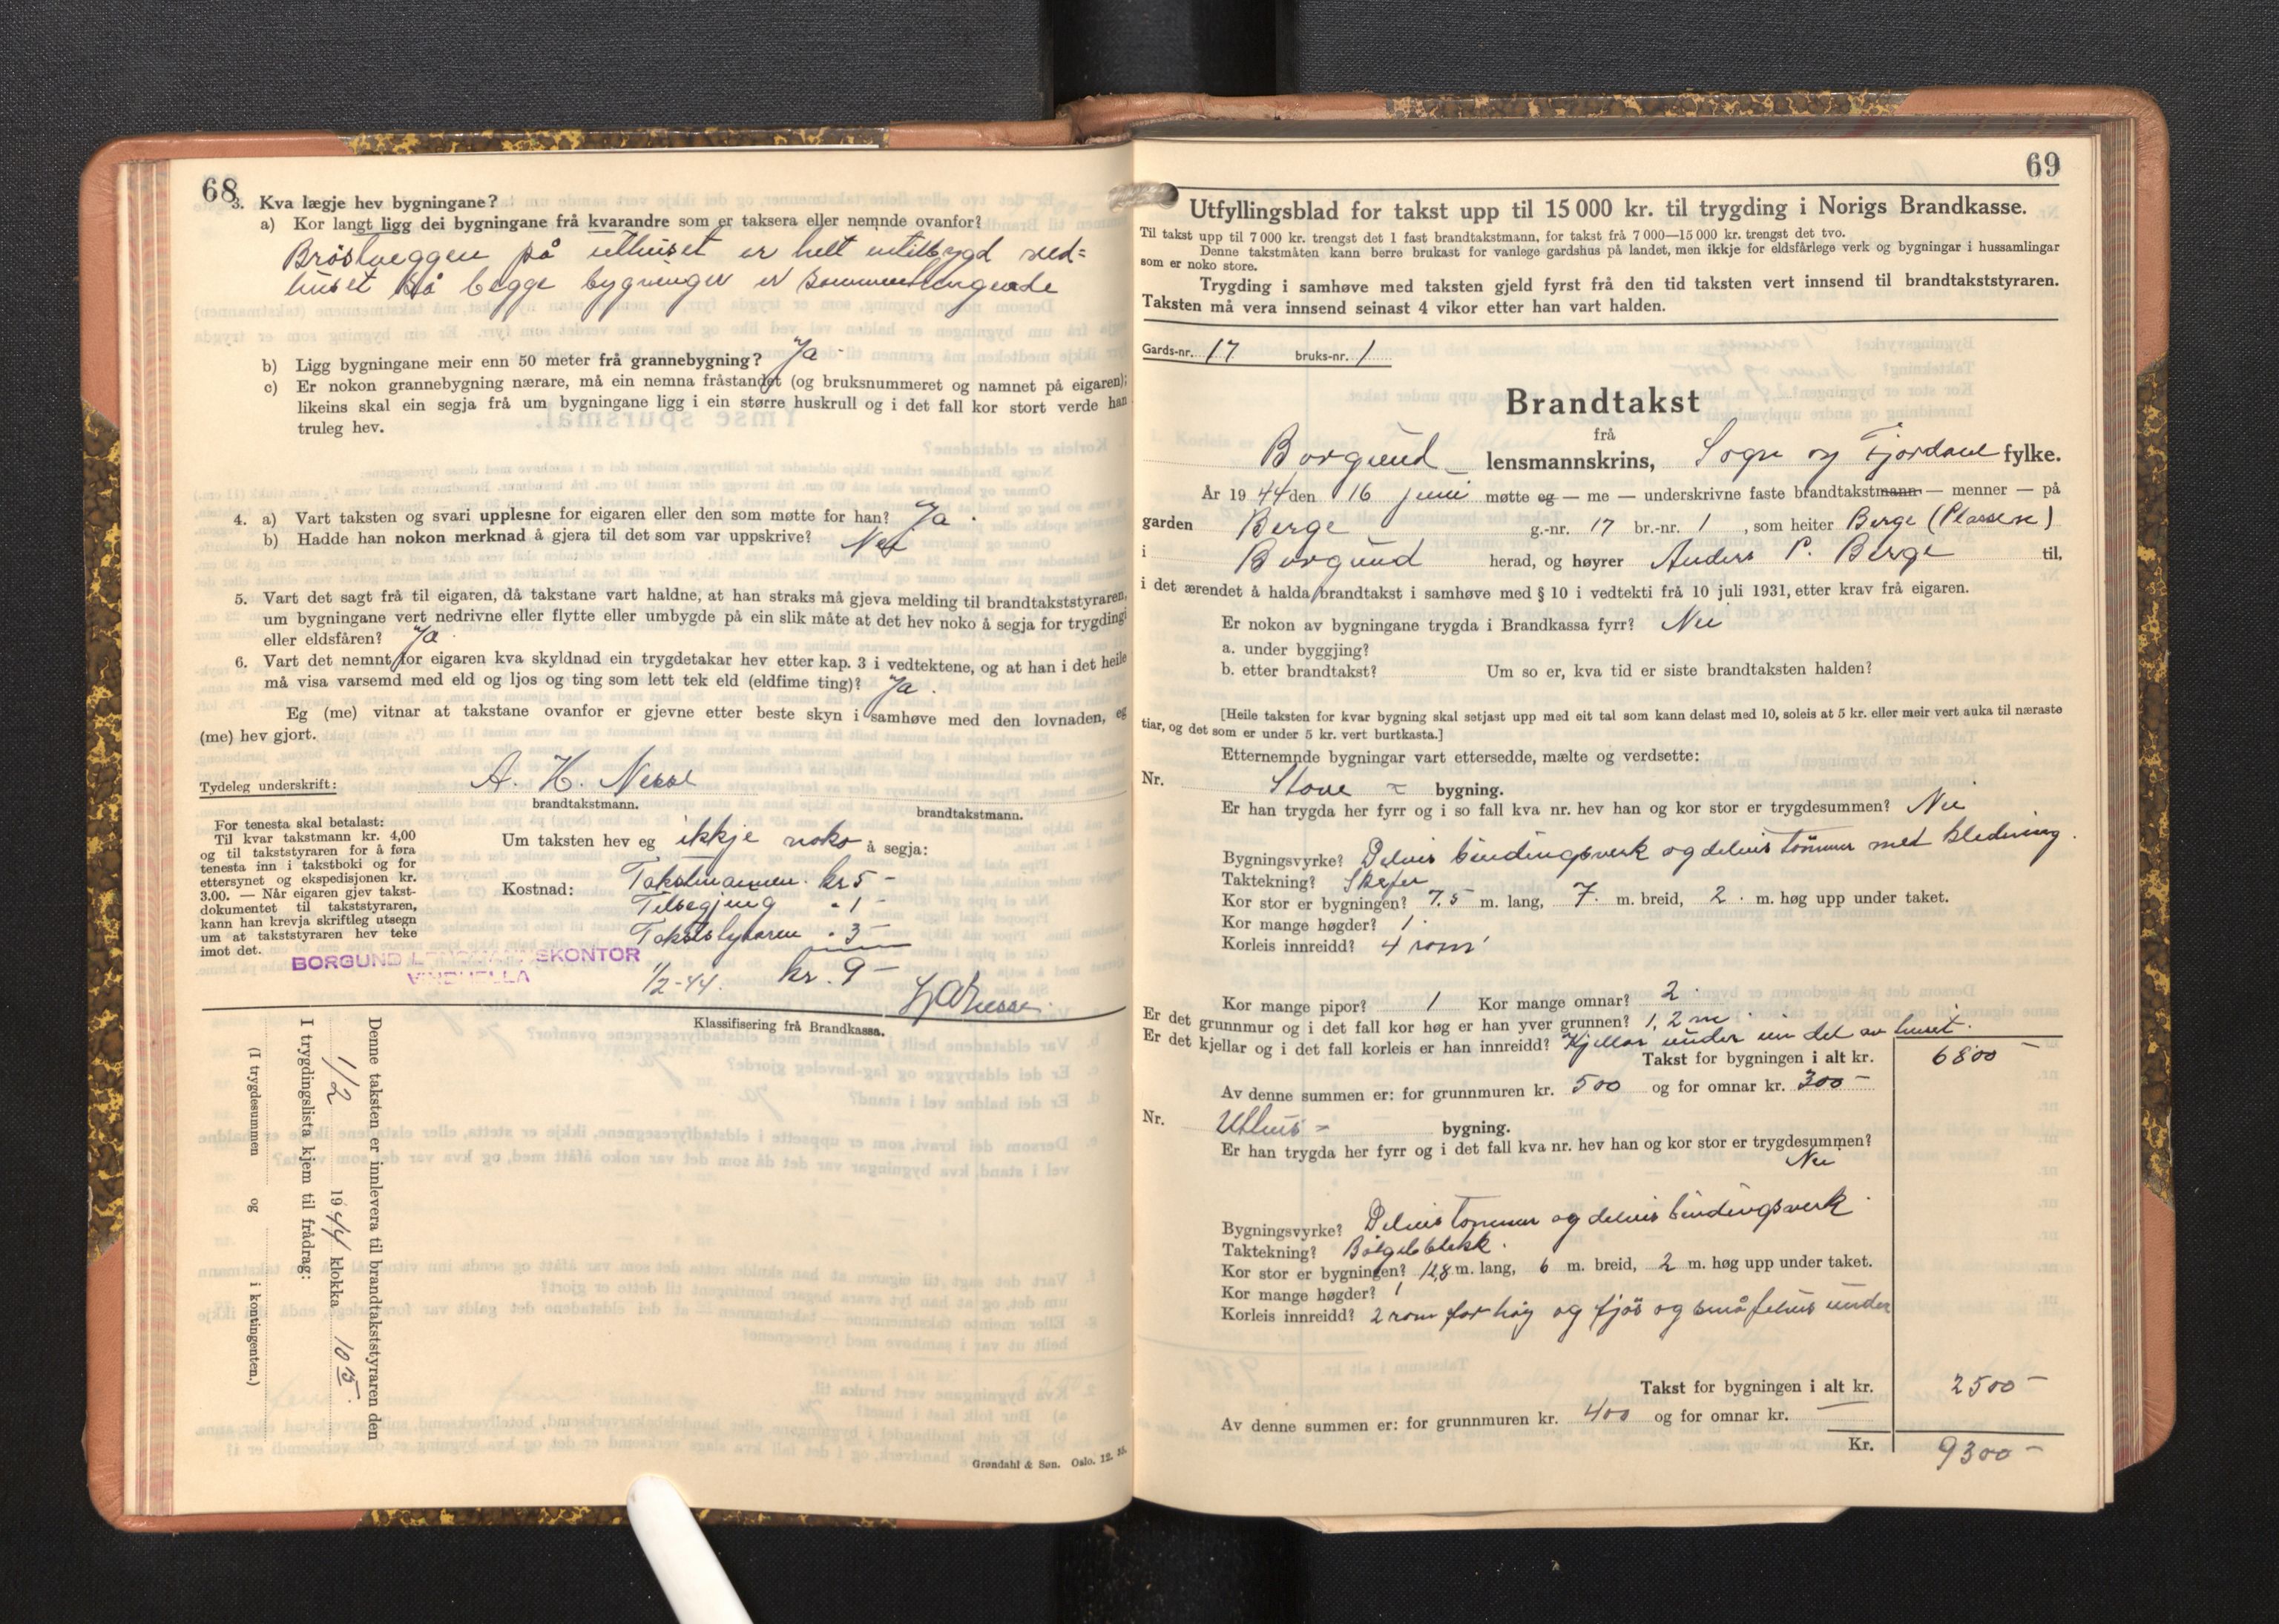 68
3. Kva lægje hev bygningane?
a) Kor langt ligg dei bygningane frå kvarandre som er taksera eller nemnde ovanfor?
Bröstveggen på uthuset er helt intilbygd ved=
huset så begge bygninger er sammenhengende
b) Ligg bygningane meir enn 50 meter frå grannebygning? Ja
c) Er nokon grannebygning nærare, må ein nemna fråstandet (og bruksnummeret og namnet på eigaren);
likeins skal ein segja frå um bygningane ligg i ein større huskrull og i det fall kor stort verde han
truleg hev.
4. a) Vart taksten og svari upplesne for eigaren eller den som møtte for han? Ja
b) Hadde han nokon merknad å gjera til det som var uppskrive? Nei
5. Vart det sagt frå til eigaren, då takstane vart haldne, at han straks må gjeva melding til brandtakststyraren,
um bygningane vert nedrivne eller flytte eller umbygde på ein slik måte at det hev noko å segja for trygdingi
eller eldsfåren? Ja
6. Vart det nemnt for eigaren kva skyldnad ein trygdetakar hev etter kap. 3 i vedtektene, og at han i det heile
må visa varsemd med eld og ljos og ting som lett tek eld (eldfime ting)? Ja.
Eg (me) vitnar at takstane ovanfor er gjevne etter beste skyn i samhøve med den lovnaden, eg
(me) hev gjort.
Tydeleg underskrift: A. H. Nesse
brandtakstmann. brandtakstmann.
For tenesta skal betalast:
Til kvar takstmann kr. 4,00
og til takststyraren for å føra
tenesta inn i takstboki og for
ettersynet og ekspedisjonen kr.
3.00. — Når eigaren gjev takst-
dokumentet til takststyraren,
kann han krevja skriftleg utsegn
um at takststyraren hev teke
imot det.
Um taksten hev eg ikkje noko å segja:
Kostnad: Takstmannen. kr 5 -
Tilsegjing " 1 -
Takststyraren " 3 -
kr. 9 -
BORGUND LENSMANNSKONTOR
VINDHELLA
1/2-44.
Klassifisering frå Brandkassa.
Denne taksten er innlevera til brandtakststyraren den
1/2 1944 klokka 10 15.
I trygdingslista kjem til frådrag:
(I trygdesummen og i kontingenten.)
Grøndahl & Søn. Oslo. 12. 35.
69
Utfyllingsblad for takst upp til 15 000 kr. til trygding i Norigs Brandkasse.
Til takst upp til 7 000 kr. trengst det 1 fast brandtakstmann, for takst frå 7 000—15 000 kr. trengst det tvo.
Denne takstmåten kann berre brukast for vanlege gardshus på landet, men ikkje for eldsfårlege verk og bygningar i hussamlingar
som er noko store.
Trygding i samhøve med taksten gjeld fyrst frå den tid taksten vert innsend til brandtakststyraren.
Taksten må vera innsend seinast 4 vikor etter han vart halden.
Gards-nr. 17 bruks-nr. 1
Brandtakst
frå
Borgund lensmannskrins, Sogn og Fjordane fylke.
År 1944 den 16 juni møtte eg — me — underskrivne faste brandtakstmann — menner — på
garden Berge g.-nr. 17 br.-nr. 1, som heiter Berge (Plassene)
i Borgund herad, og høyrer Anders P. Berge til,
i det ærendet å halda brandtakst i samhøve med § 10 i vedtekti frå 10 juli 1931, etter krav frå eigaren.
Er nokon av bygningane trygda i Brandkassa fyrr? Nei
a. under byggjing?
b. etter brandtakst? Um so er, kva tid er siste brandtaksten halden?
[Heile taksten for kvar bygning skal setjast upp med eit tal som kann delast med 10, soleis at 5 kr. eller meir vert auka til næraste
tiar, og det som er under 5 kr. vert burtkasta.]
Etternemnde bygningar vart ettersedde, mælte og verdsette:
Nr. Stove = bygning.
Er han trygda her fyrr og i so fall kva nr. hev han og kor stor er trygdesummen? Nei
Bygningsvyrke? Delvis bindingsverk og delvis tømmer med kledning.
Taktekning? Skifer
Kor stor er bygningen? 7.5 m. lang, 7. m. breid, 2. m. høg upp under taket.
Kor mange høgder? 1.
Korleis innreidd? 4 rom
Kor mange pipor? 1 Kor mange omnar? 2.
Er det grunnmur og i det fall kor høg er han yver grunnen? 1,2 m.
Er det kjellar og i det fall korleis er han innreidd? Kjellar under ein del av huset.
Takst for bygningen i alt kr. 6800 -
Av denne summen er: for grunnmuren kr. 500 og for omnar kr. 300 -
Nr. Uthus = bygning.
Er han trygda her fyrr og i det fall kva nr. hev han og kor stor er trygdesummen?
Nei
Bygningsvyrke? Delvis tømmer og delvis bindingsverk.
Taktekning? Bølgeblekk.
Kor stor er bygningen? 12,8 m. lang, 6 m. breid, 2 m. høg upp under taket.
Kor mange høgder? 1
Korleis innreidd? 2 rom for høy og fjös og småfehus under
Takst for bygningen i alt kr. 2500 -
Av denne summen er: for grunnmuren kr. 400 og for omnar kr. —
Kr. 9300 -